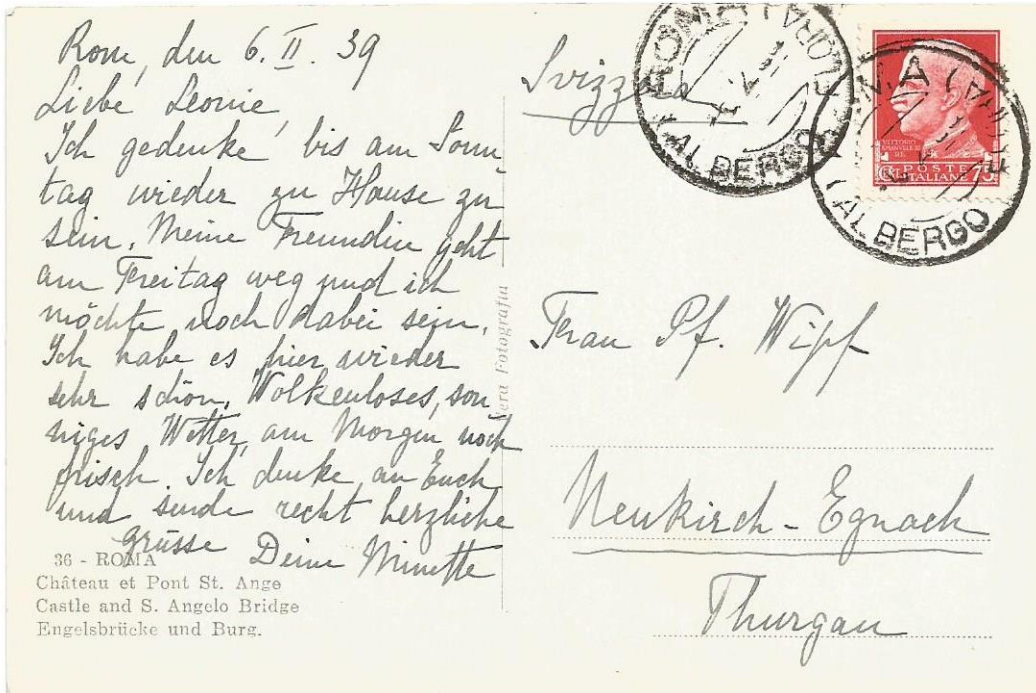 Rom, den 6. II. 39
Liebe Leonie,
Ich gedenke, bis am Sonn
tag wieder zu Hause zu
sein. Meine Freundin geht
am Freitag weg und ich
möchte noch dabei sein.
Ich habe es hier wieder
sehr schön. Wolkenloses, son
niges Wetter, am Morgen noch
frisch. Ich denke an Euch
und sende recht herzliche
Grüsse Deine Minette
36 - ROMA
Château et Pont St. Ange
Castle and S. Angelo Bridge
Engelsbrücke und Burg.
Vera Fotografia
Svizzera
ROMA
ALBERGO
ALBERGO
VITTORIO
EMANUELE III
RE
POSTE
ITALIANE
75
Frau Pf. Wipf
Neukirch - Egnach
Thurgau